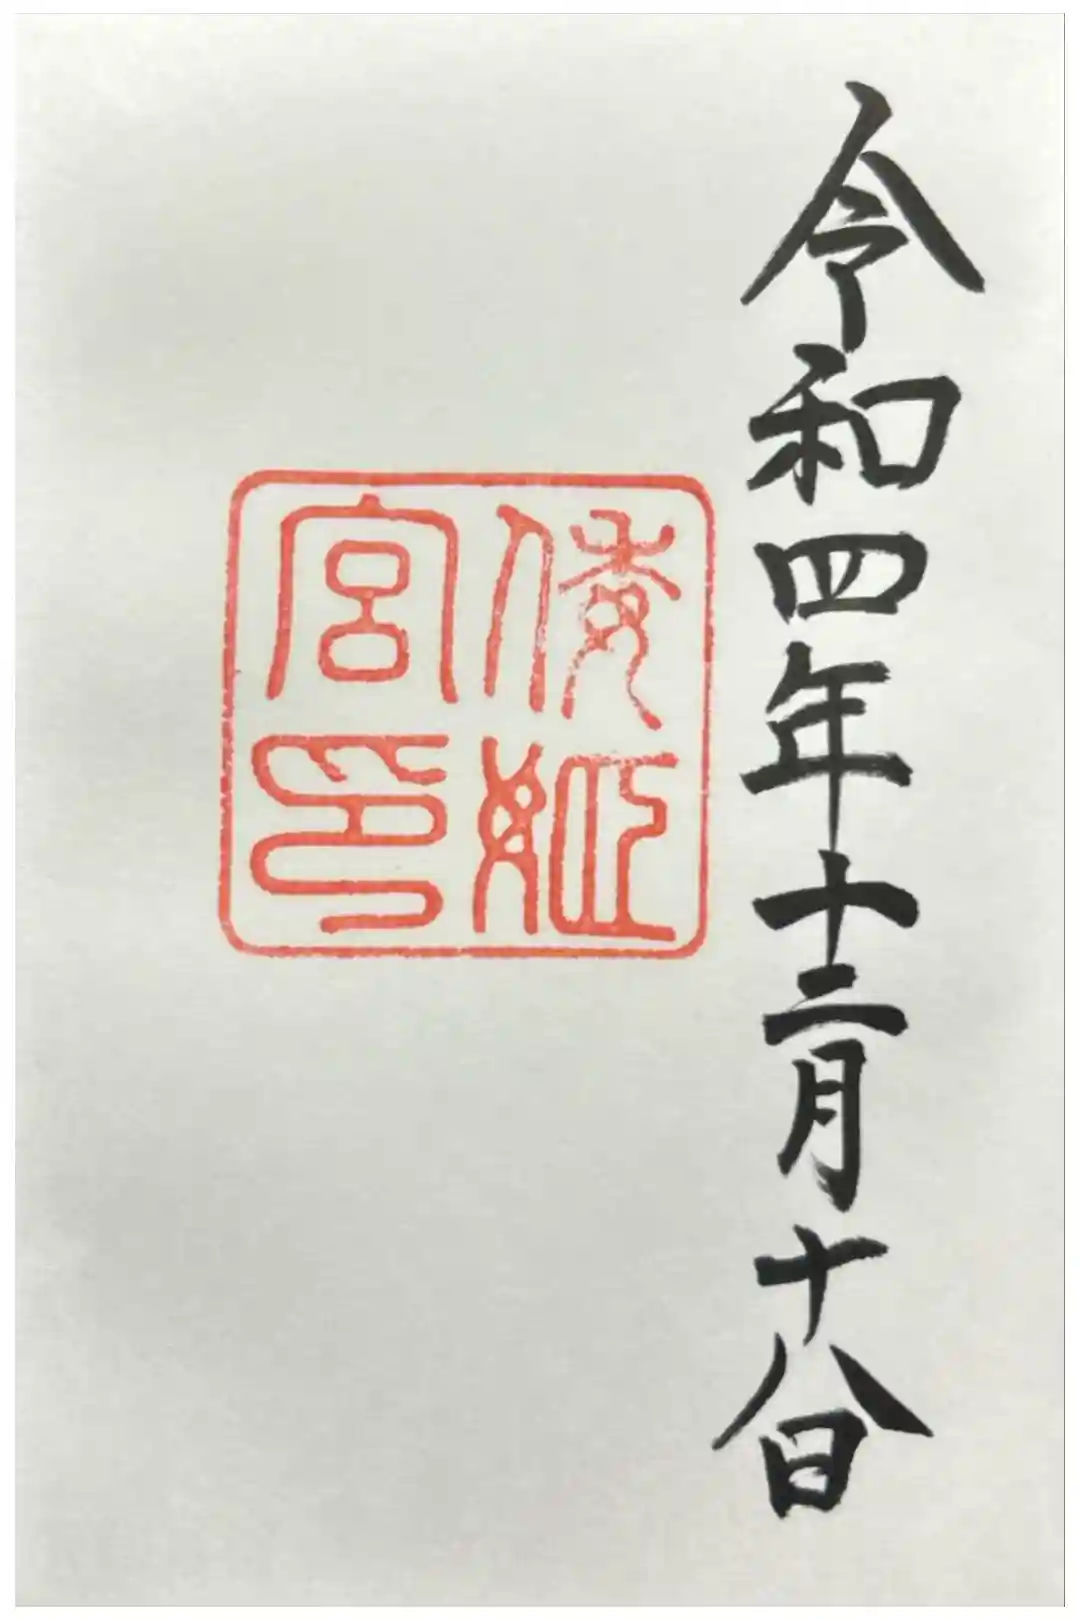 令和四年十二月十八日
倭姫
宮印